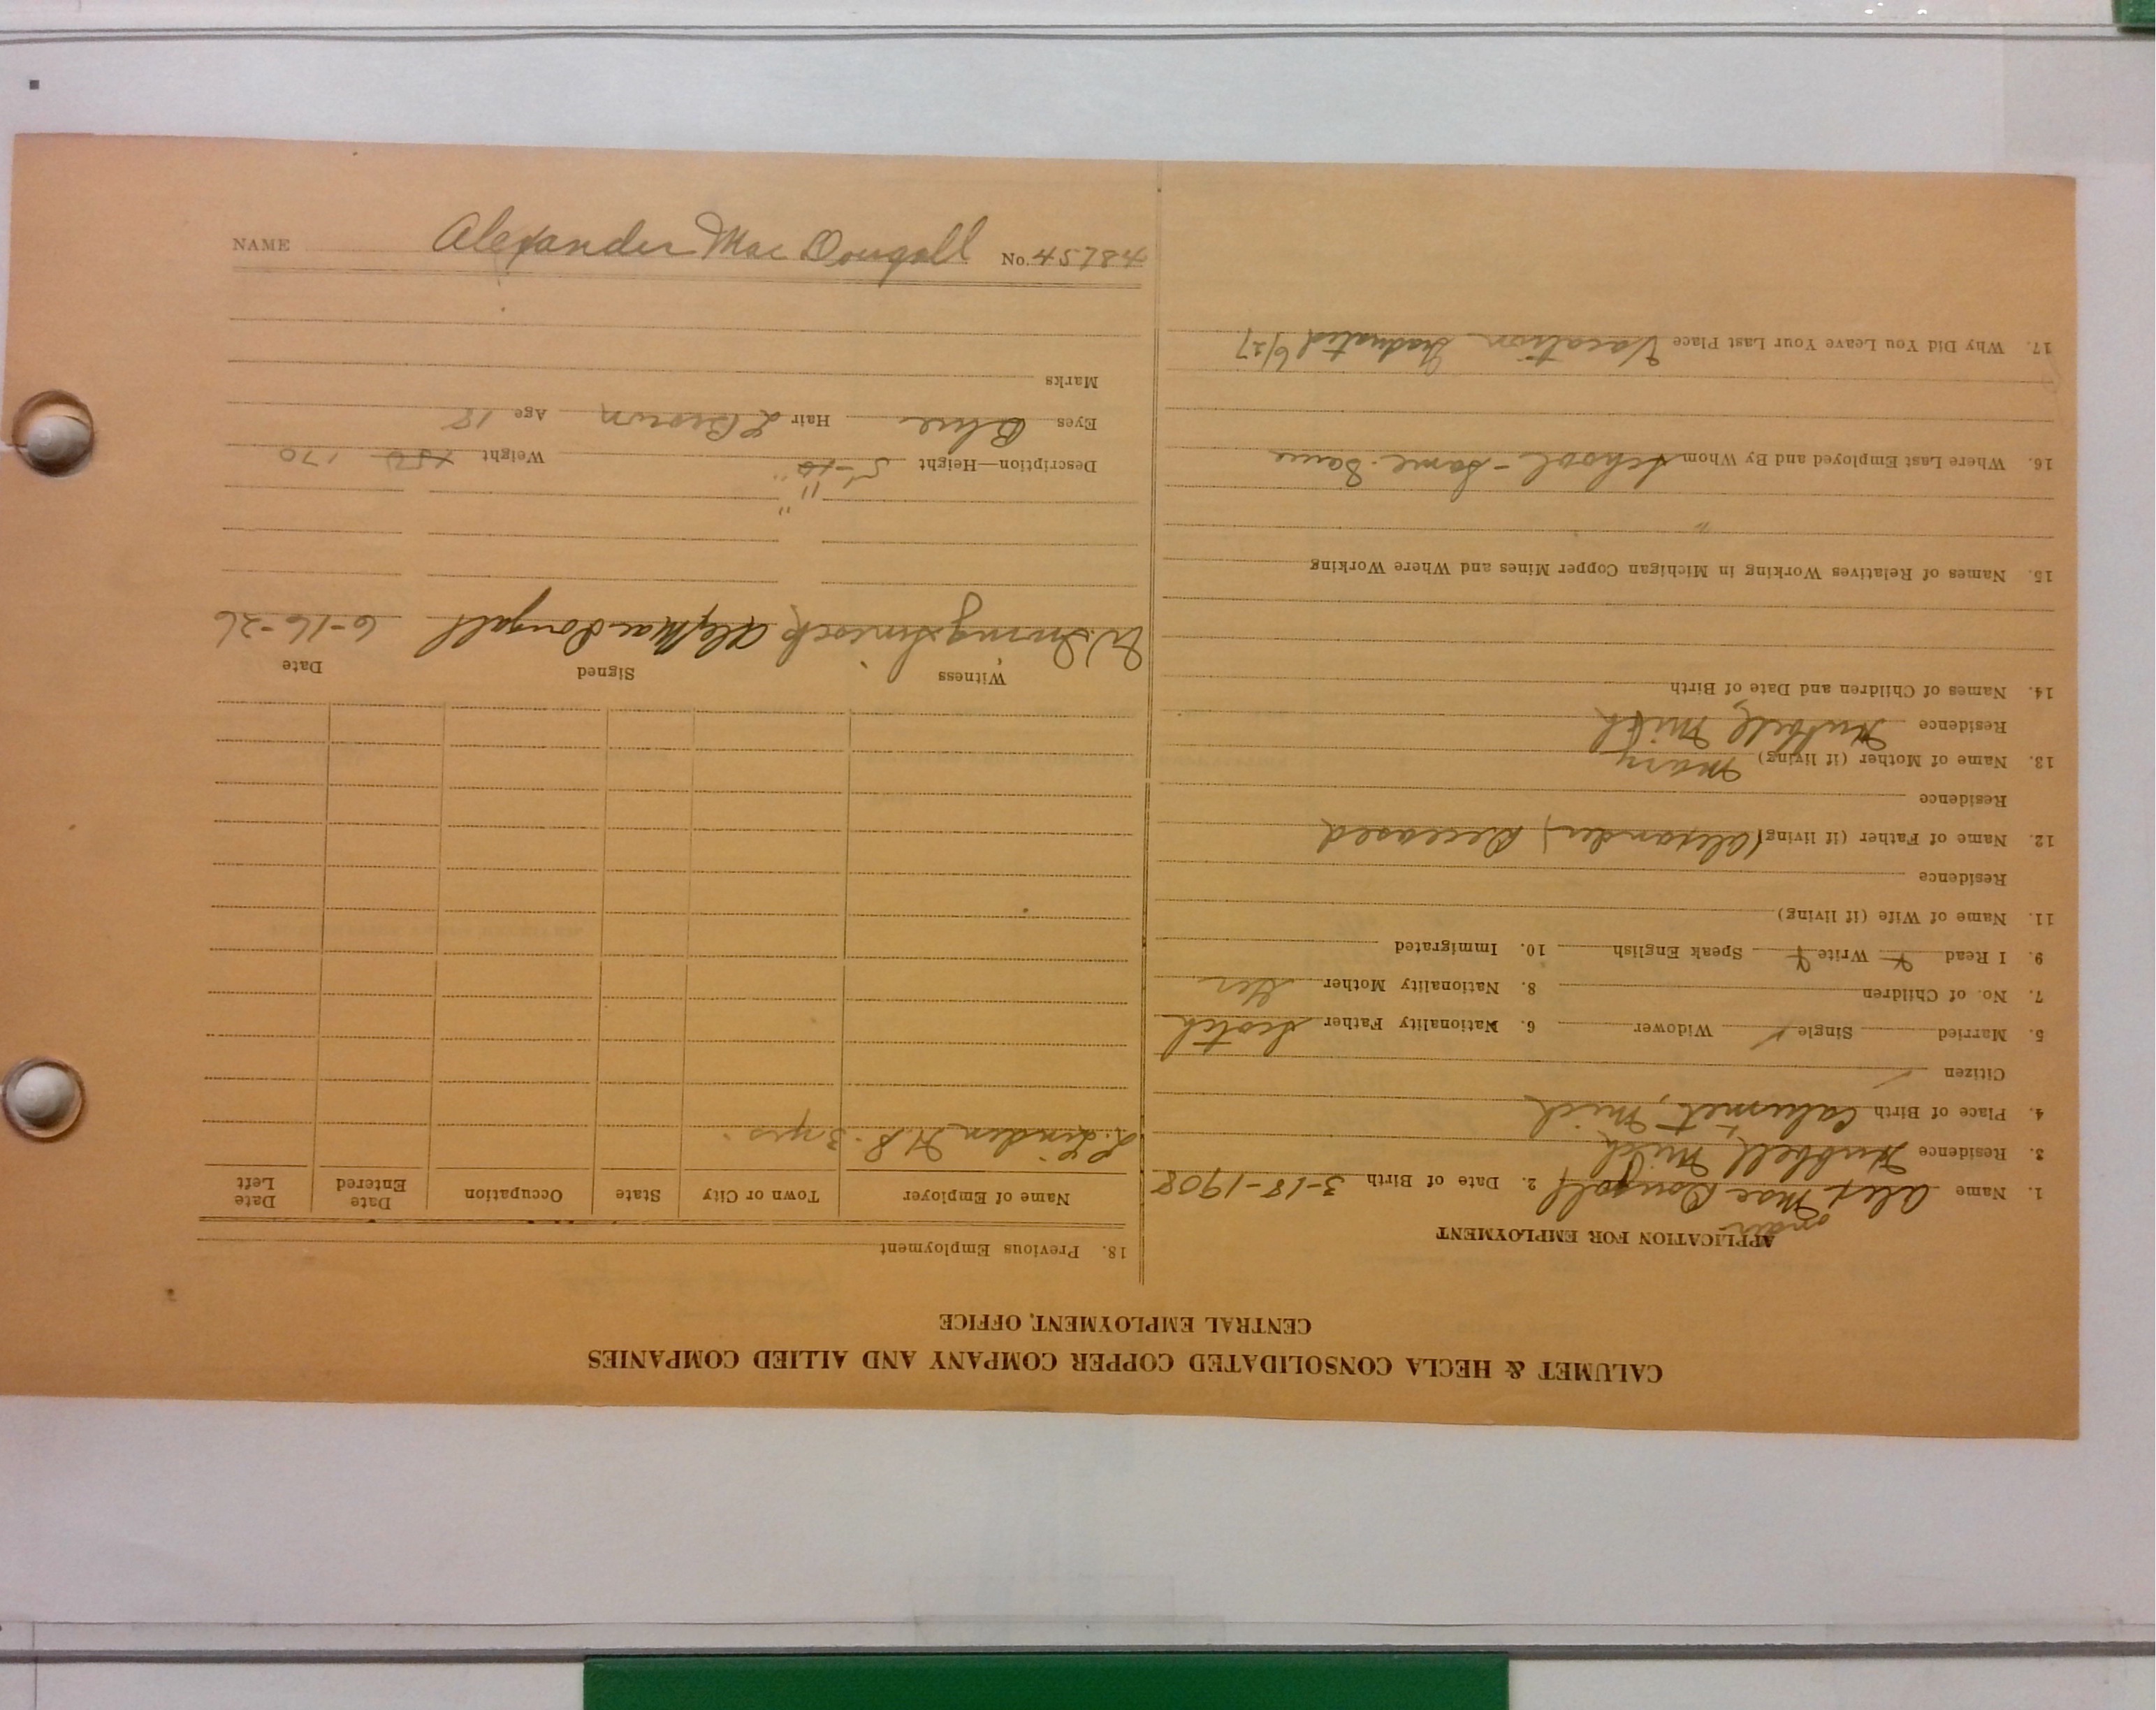 CALUMET & HECLA CONSOLIDATED COPPER COMPANY AND ALLIED COMPANIES
CENTRAL EMPLOYMENT OFFICE
APPLICATION FOR EMPLOYMENT
ander
1. Name Alex Mac Dougall 2. Date of Birth 3-18-1908
3. Residence Hubbell, Mich
4. Place of Birth Calumet, Mich
Citizen ✓
5. Married Single ✓ Widower 6. Nationality Father Scotch
7. No. of Children 8. Nationality Mother Ger
9. I Read Write Speak English 10. Immigrated
11. Name of Wife (if living)
Residence
12. Name of Father (if living) (Alexander) Deceased
Residence
13. Name of Mother (if living) Mary
Residence Hubbell, Mich
14. Names of Children and Date of Birth
15. Names of Relatives Working in Michigan Copper Mines and Where Working
"
16. Where Last Employed and By Whom School - Same - Same
17. Why Did You Leave Your Last Place Vacation Graduated 6/27
18. Previous Employment
Name of Employer Town or City State Occupation Date Entered Date Left
L. Linden H.S. 3 yrs.
Witness Signed Date
W. Irving Alex Mac Dougall 6-16-26
" "
Description—Height 5'-10" Weight 150 170
Eyes Blue Hair L Brown Age 18
Marks
NAME Alexander Mac Dougall No. 45784